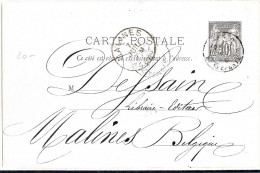 CARTE POSTALE
Ce côté est exclusivement réservé à l'adresse.
M Dessain
Libraire-Editeur
Malines Belgique